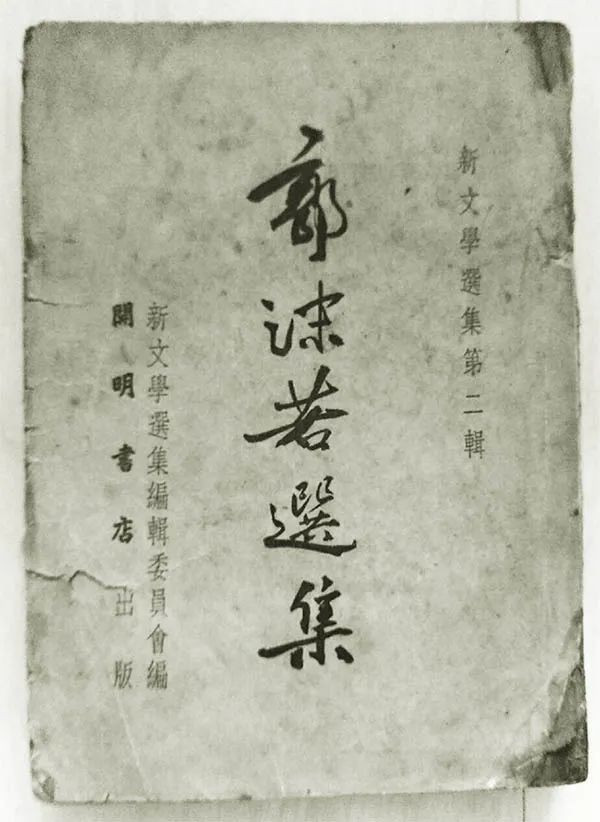 新文學選集第二輯
郭沫若選集
新文學選集編輯委員會編
開明書店出版